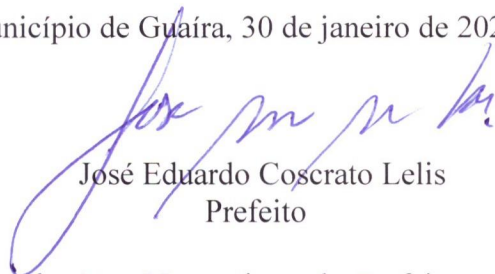 unicípio de Guaíra, 30 de janeiro de 202
José
José Eduardo Coscrato Lelis
Prefeito